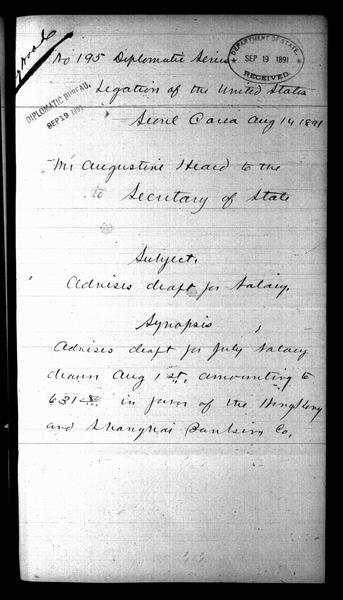 No 195 Diplomatic Series
DEPARTMENT OF STATE,
SEP 19 1891
RECEIVED.
DIPLOMATIC BUREAU,
SEP 19 1891
Legation of the United States
Seoul Corea Aug 14 1891
Mr Augustine Heard to the
to Secretary of State
Subject.
Advises draft for Salary.
Synopsis
Advises draft for July Salary
drawn Aug 1st, amounting to
631 in favor of the HongKong
and Shanghai Banking Co.